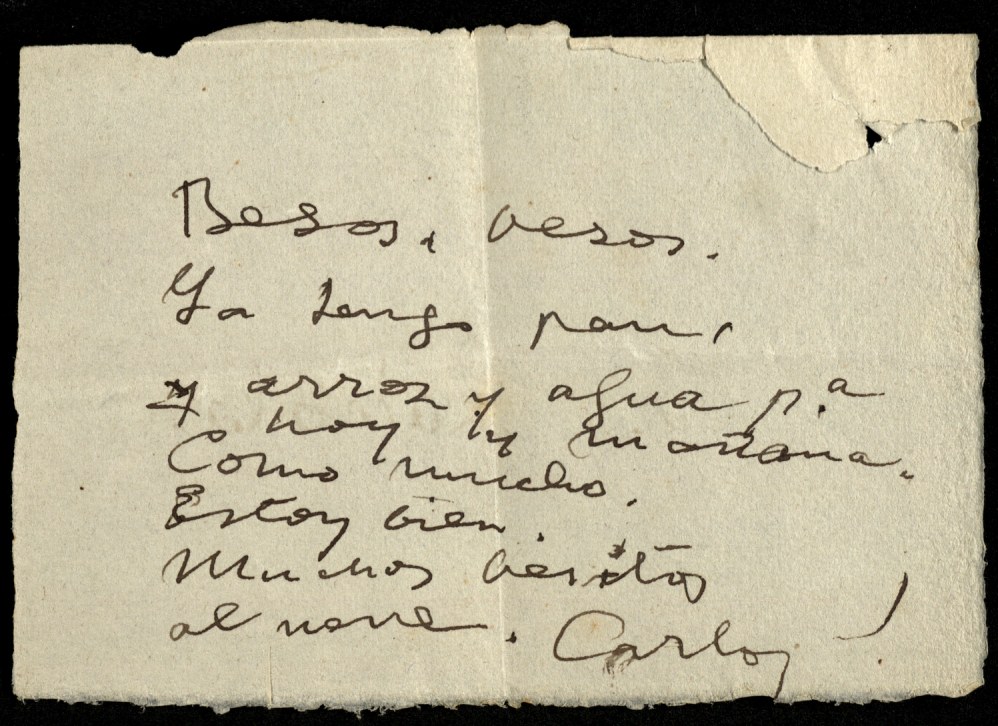 Besos, besos.
Ya tengo pan,
y arroz y agua p.a
hoy y mañana.
Como mucho.
Estoy bien.
Muchos besitos
al nene.
Carlos